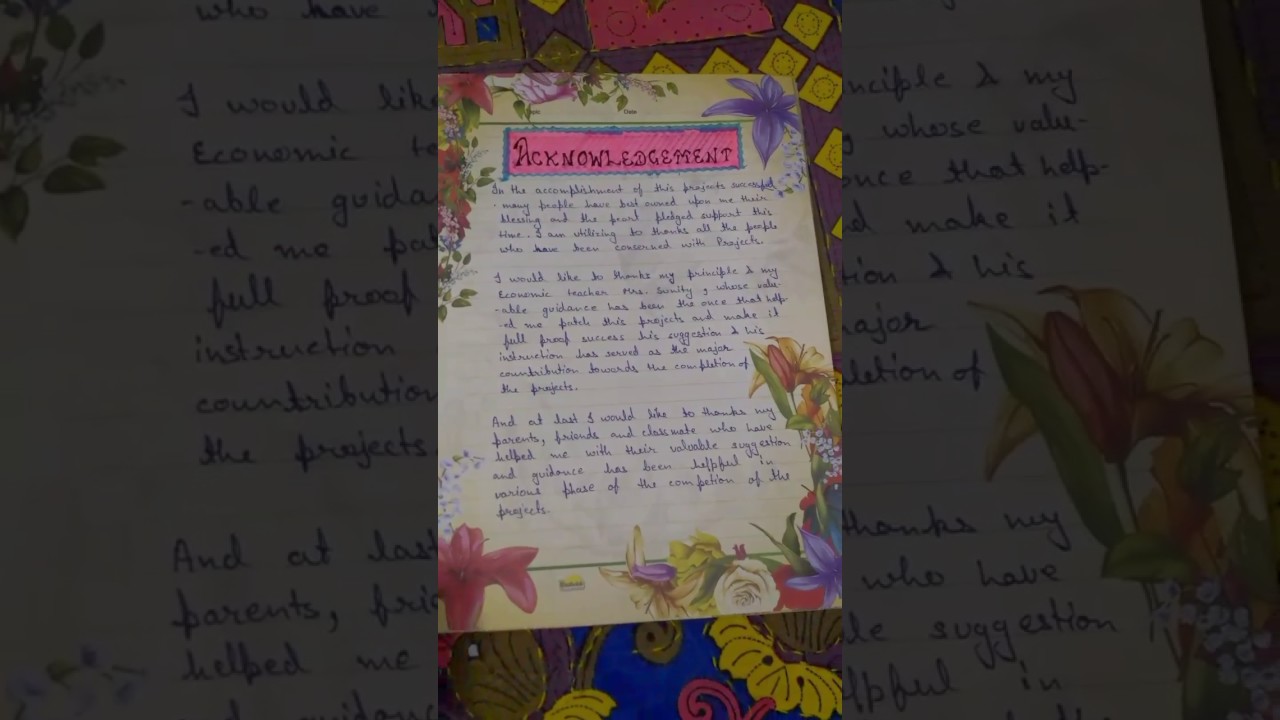 Date
ACKNOWLEDGEMENT
In the accomplishment of this projects successful
- many people have best owned upon me their
blessing and the peart pledged support this
time. I am utilizing to thanks all the people
who have been conserned with Projects.
I would like to thanks my principle & my
Economic teacher Mrs. Sunity, whose valu-
-able guidance has been the once that help
-ed me patch this projects and make it
full proof success his suggestion & his
instruction has served as the major
countribution towards the completion of
the projects.
And at last I would like to thanks my
parents, friends and classmate who have
helped me with their valuable suggestion
and guidance has been helpful in
various phase of the competion of the
projects.